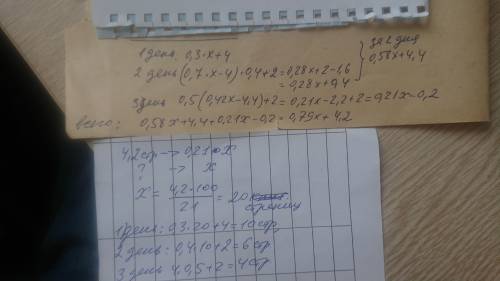 1 день 0,3·x+4
2 день (0,7·x-4)·0,4+2=0,28x+2-1,6
=0,28x+0,4
за 2 дня
0,58x+4,4
3 день 0,5(0,42x-4,4)+2=0,21x-2,2+2=0,21x-0,2
всего: 0,58x+4,4+0,21x-0,2=0,79x+4,2
4,2стр → 0,21 X
? → X
X = 4,2·100 / 21 = 20 страниц
1 день: 0,3·20+4=10стр,
2 день: 0,4·10+2=6стр
3 день 4·0,5+2=4стр